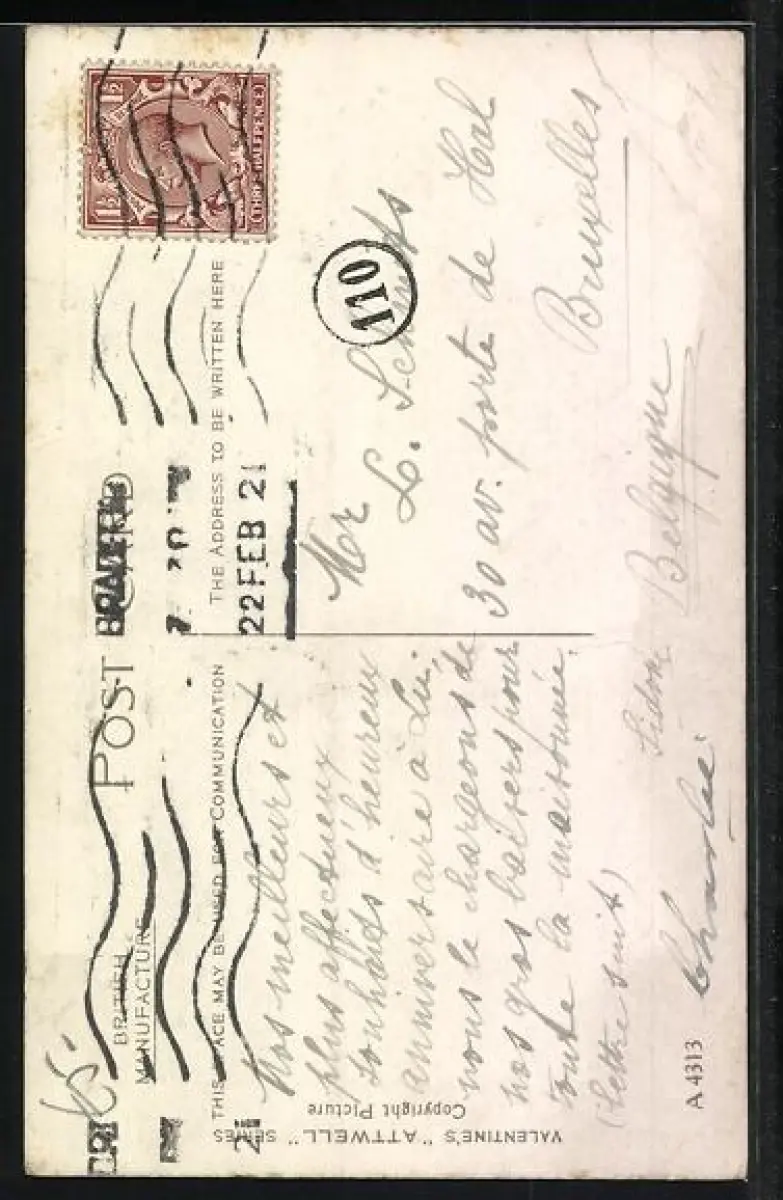 POST CARD
BRITISH
MANUFACTURE
THIS SPACE MAY BE USED FOR COMMUNICATION
THE ADDRESS TO BE WRITTEN HERE
THREE HALFPENCE
1½
1½
22 FEB 21
110
Nos meilleurs et
plus affectueux
souhaits d'heureux
anniversaire à Lui,
nous le chargeons de
nos gros baisers pour
toute la maisonnée.
(lettre suit)
Charlie
Mor
L.
30 av. porte de Hal
Bruxelles
Belgique
VALENTINE'S "ATTWELL" SERIES
Copyright Picture
A 4313